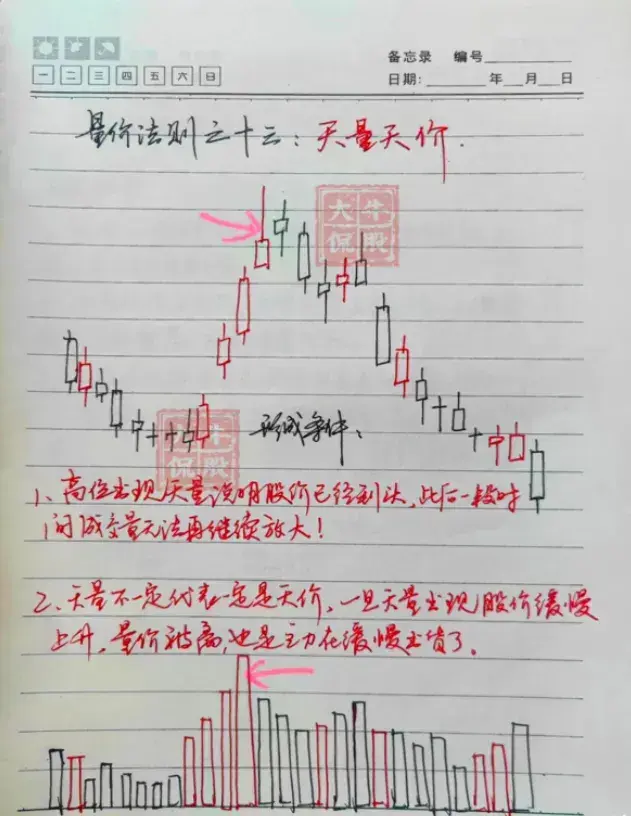 备忘录 编号
一 二 三 四 五 六 日
日期: 年 月 日
量价法则之十三：天量天价.
大牛
侃股
形成条件、
大牛
侃股
1、高位出现天量说明股价已经到头,此后一段时
间成交量无法再继续放大!
2、天量不一定代表一定是天价,一旦天量出现股价缓慢
上升,量价背离,也是主力在缓慢出货了.